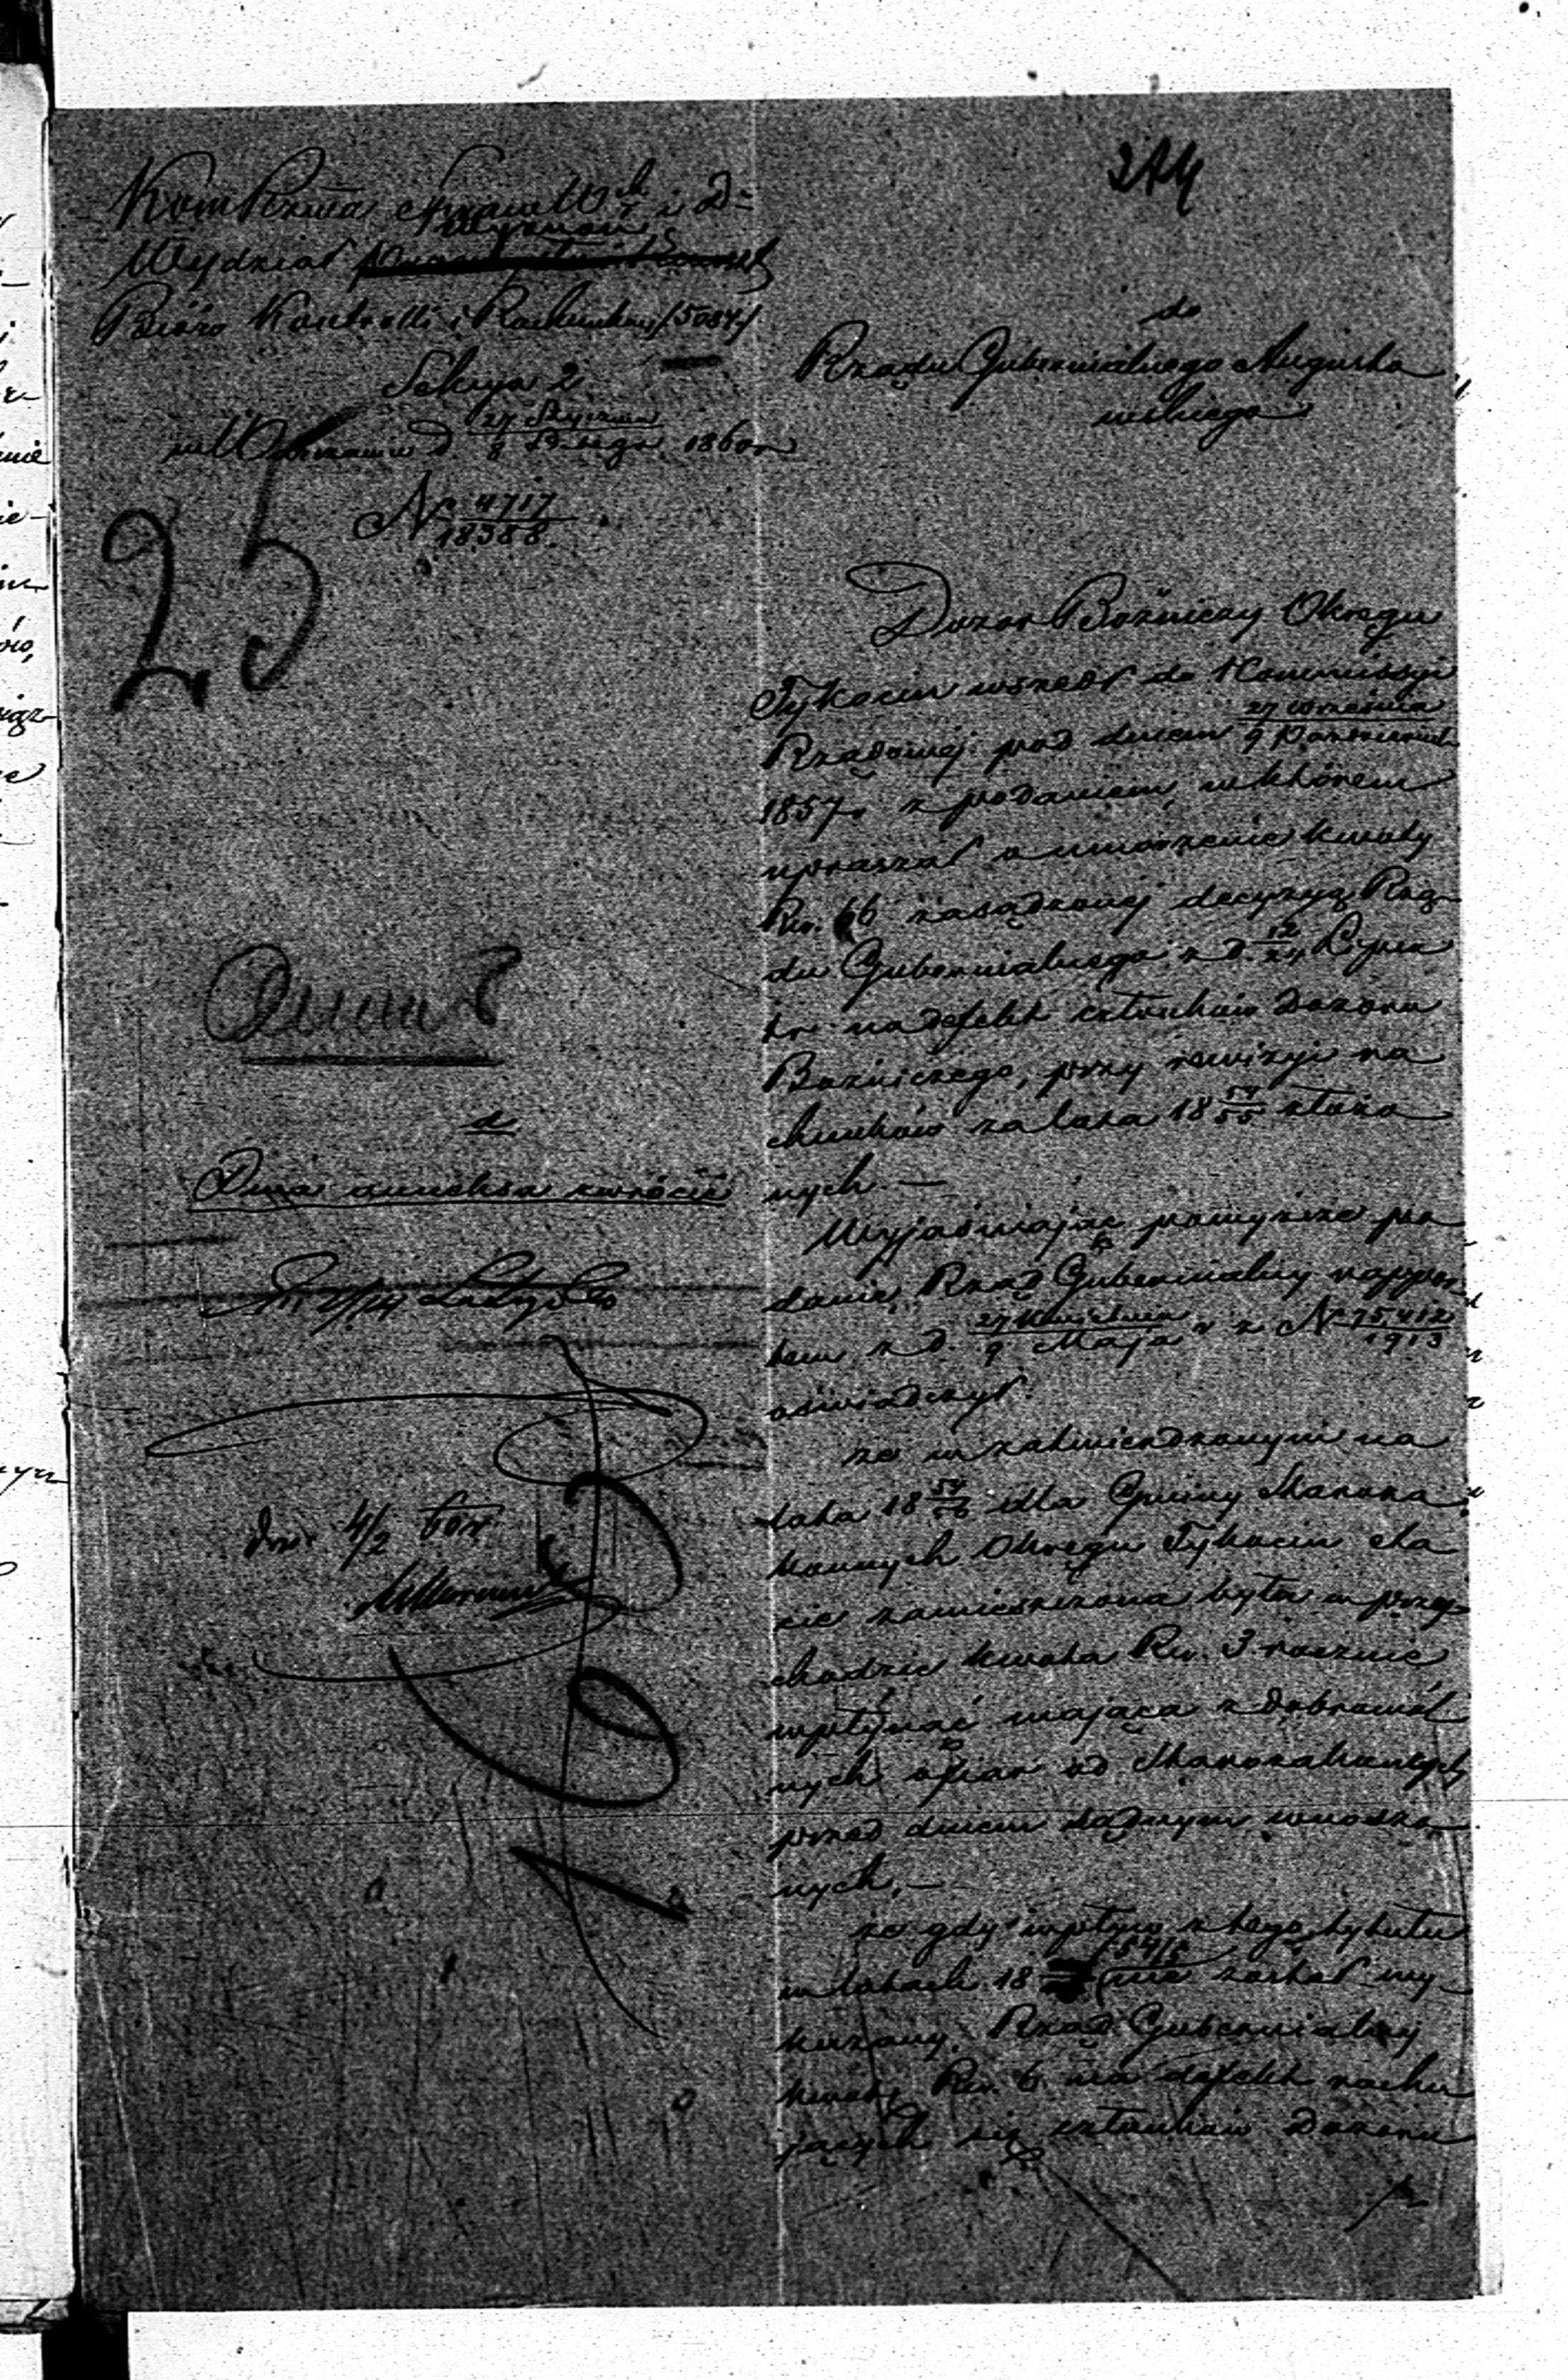 214
Kom Rząwa Spraw W i D
Wyznań
Wydział
Biuro Kontrolli i Rachunków /5084/
Sekcya 2
w Warszawie d 27 Stycznia
8 Lutego 1860 r
N 4717
18388
25
do
Rządu Gubernialnego Augusto
wskiego
Dwa annexa zwrócić
dn. 4/2 60 r
Dozór Bóżniczy Okręgu
Tykocin wszedł do Kommissyi
Rządowej pod dniem 27 Września
9 Października
1857 r. z podaniem, w którem
upraszał o umorzenie kwoty
Rs. 6 zasądzonej decyzyą Rzą
du Gubernialnego z d. 12/24 Lipca
t.r. na defekt członków Dozoru
Bóżniczego, przy rewizyi ra
chunków za lata 18 54/55 złożo
nych. —
Wyjaśniając powyższe po
danie, Rząd Gubernialny rappor
tem z d. 27 Kwietnia
9 Maja r z N 75,412
1913
oświadczył:
że w zatwierdzonym na
lata 18 54/56 dla Gminy Starozak
konnych Okręgu Tykocin eta
cie zamieszczona była w przy
chodzie kwota Rs. 3 rocznie
wpłynąć mająca z dobrowol
nych ofiar od Starozakonnych
przed dniem sądnym wnoszo
nych, —
że gdy wpływ z tego tytułu
w latach 18 54/5 nie został wy
kazany, Rząd Gubernialny
kwotę Rs. 6 na defekt rachu
jących się członków Dozoru